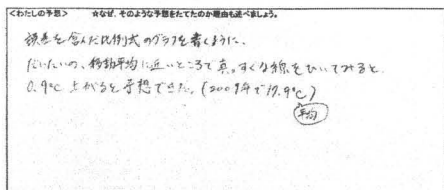 <わたしの予想> ☆なぜ、そのような予想をたてたのか理由も述べましょう。
誤差を含んだ比例式のグラフを書くように、
だいたいの、移動平均に近いところで真っすぐな線をひいてみると
0.9℃上がると予想できた。(2009年で17.9℃)
平均